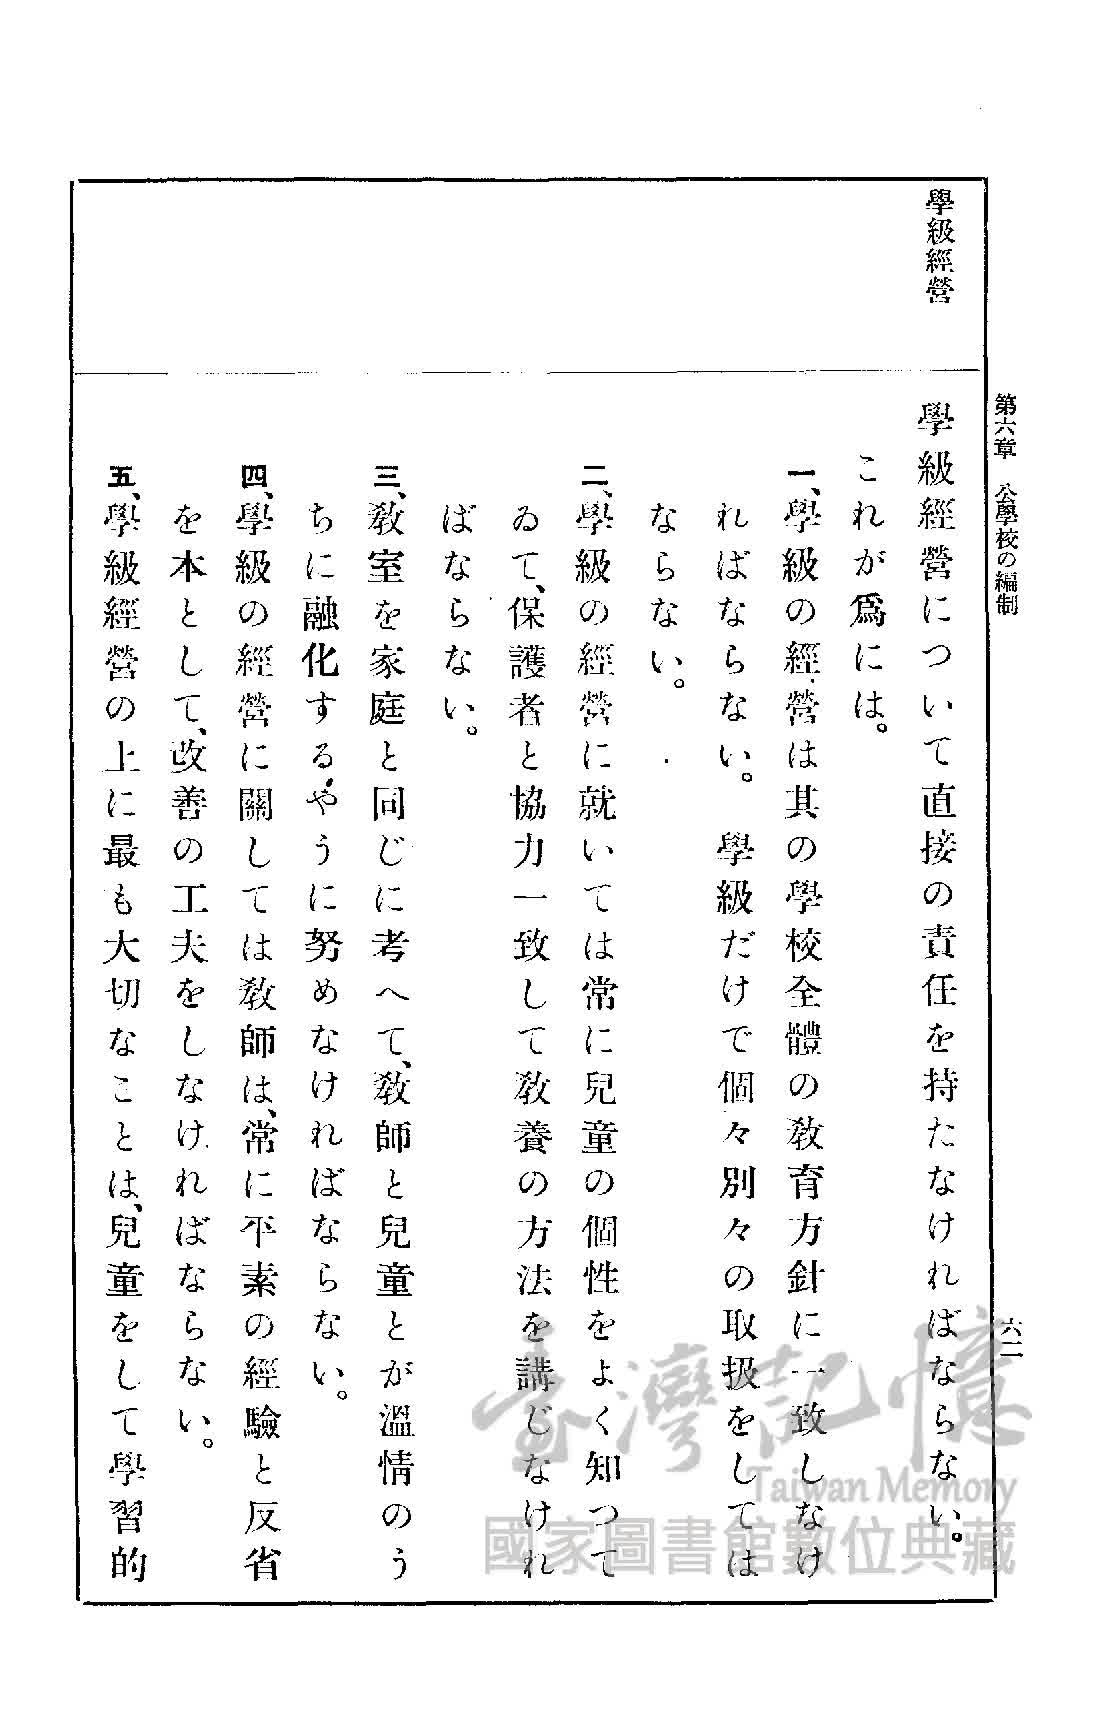 第六章　公學校の編制
六二
學級經營
學級經營について直接の責任を持たなければならない。
これが爲には。
一、學級の經營は其の學校全體の敎育方針に一致しなけ
ればならない。　學級だけで個々別々の取扱をしては
ならない。
二、學級の經營に就いては常に兒童の個性をよく知つて
ゐて、保護者と協力一致して敎養の方法を講じなけれ
ばならない。
三、敎室を家庭と同じに考へて、敎師と兒童とが溫情のう
ちに融化するやうに努めなければならない。
四、學級の經營に關しては敎師は、常に平素の經驗と反省
を本として、改善の工夫をしなければならない。
五、學級經營の上に最も大切なことは、兒童をして學習的
臺灣記憶
Taiwan Memory
國家圖書館數位典藏